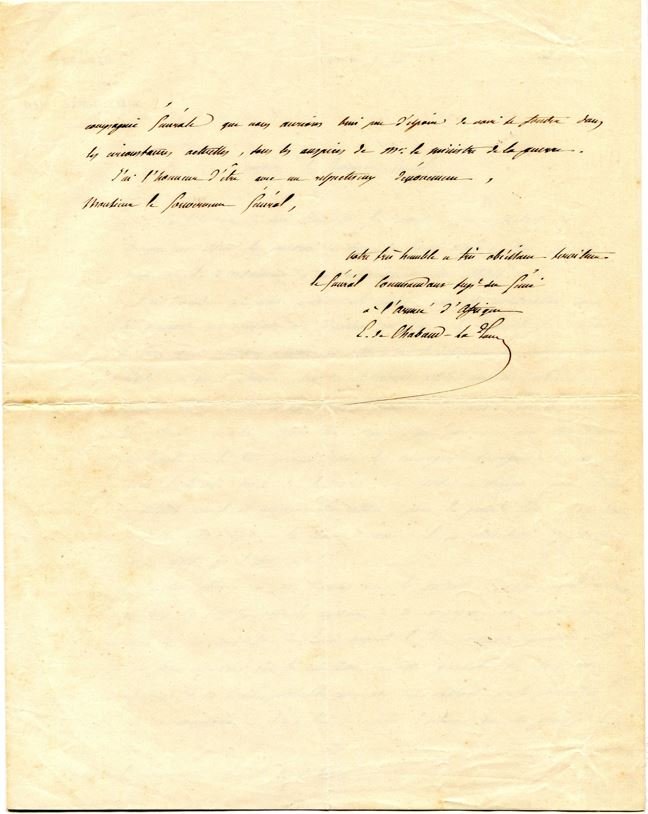 compagnie Générale que nous aurions d'espoir de voir se fonder dans
les circonstances actuelles, sous les auspices de Mr. le ministre de la guerre.
J'ai l'honneur d'être avec un respectueux dévouement,
Monsieur le Gouverneur Général,
votre très humble et très obéissant serviteur
le Général Commandant supr. du Génie
à l'armée d'Afrique
E. de Chabaud-La Tour